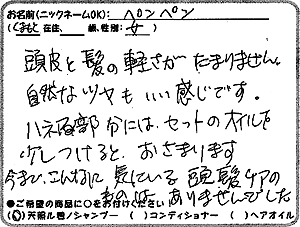 お名前(ニックネームOK): ペンペン
(くまもと在住、 歳、性別: 女 )
頭皮と髪の軽さがたまりません
自然なツヤもいい感じです。
ハネる部分には、セットのオイルを
少しつけると、おさまります
今まで、こんなに気に入る頭髪ケアの
ものはありませんでした
●ご希望の商品に○をお付けください
(○)天照ル碧ノシャンプー ( )コンディショナー ( )ヘアオイル